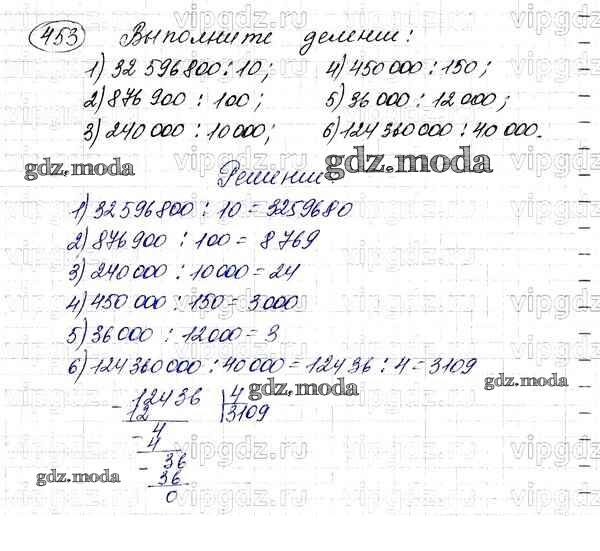 453 Выполните деление:
1) 32 596 800 : 10; 4) 450 000 : 150;
2) 876 900 : 100; 5) 36 000 : 12 000;
3) 240 000 : 10 000; 6) 124 360 000 : 40 000.
gdz.moda gdz.moda
Решение:
1) 32 596 800 : 10 = 3259680
2) 876 900 : 100 = 8 769
3) 240 000 : 10 000 = 24
4) 450 000 : 150 = 3000
5) 36 000 : 12 000 = 3
6) 124 360 000 : 40 000 = 124 36 : 4 = 3109
gdz.moda gdz.moda
- 12436 4
12 3109
- 4
4
- 36
36
0
gdz.moda gdz.moda
vipgdz.ru